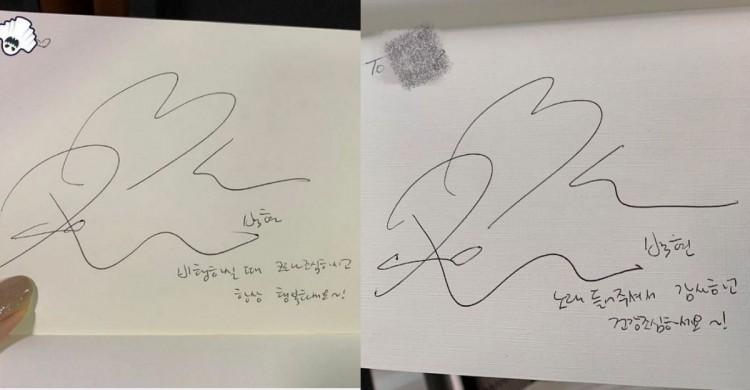 백현
비행하실 때 코로나조심하시고
항상 행복하세요~!
To
백현
노래 들어주셔서 감사하고
건강조심하세요~!